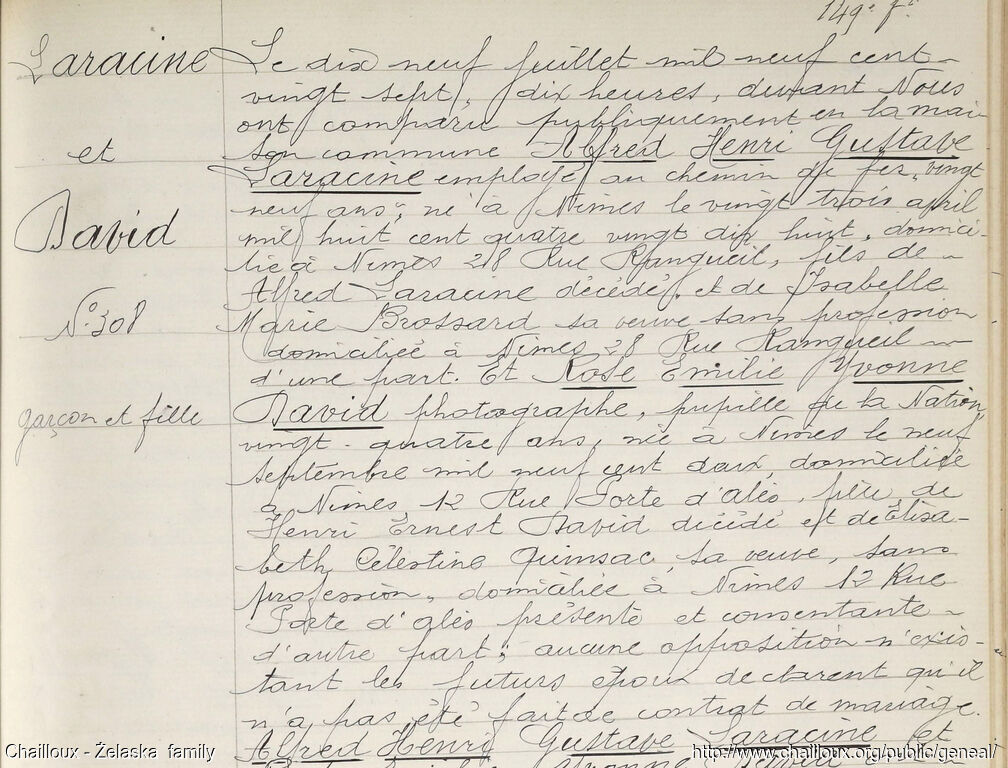 149e f.
Laracine
et
David
N° 308
garçon et fille
Le dix neuf juillet mil neuf cent
vingt sept, dix heures, devant Nous
ont comparu publiquement en la mai
son commune Alfred Henri Gustave
Laracine employé au chemin de fer, vingt
neuf ans, né à Nimes le vingt trois avril
mil huit cent quatre vingt dix huit, domici-
lié à Nimes 28 Rue Rangueil, fils de
Alfred Laracine décédé, et de Isabelle
Marie Brossard sa veuve sans profession
domiciliée à Nimes 28 Rue Rangueil
d'une part. Et Rose Emilie Yvonne
David photographe, pupille de la Nation,
vingt-quatre ans, née à Nimes le neuf
septembre mil neuf cent deux, domiciliée
à Nimes, 12 Rue Porte d'alès, fille de
Henri Ernest David décédé et de Elisa-
beth Célestine Quinsac, sa veuve, sans
profession, domiciliée à Nimes 12 Rue
Porte d'alès présente et consentante
d'autre part; aucune opposition n'exis-
tant les futurs époux declarent qu'il
n'a pas été fait de contrat de mariage.
Alfred Henri Gustave Laracine et
Yvonne David
Chailloux - Želaska family
http://www.chailloux.org/public/geneal/